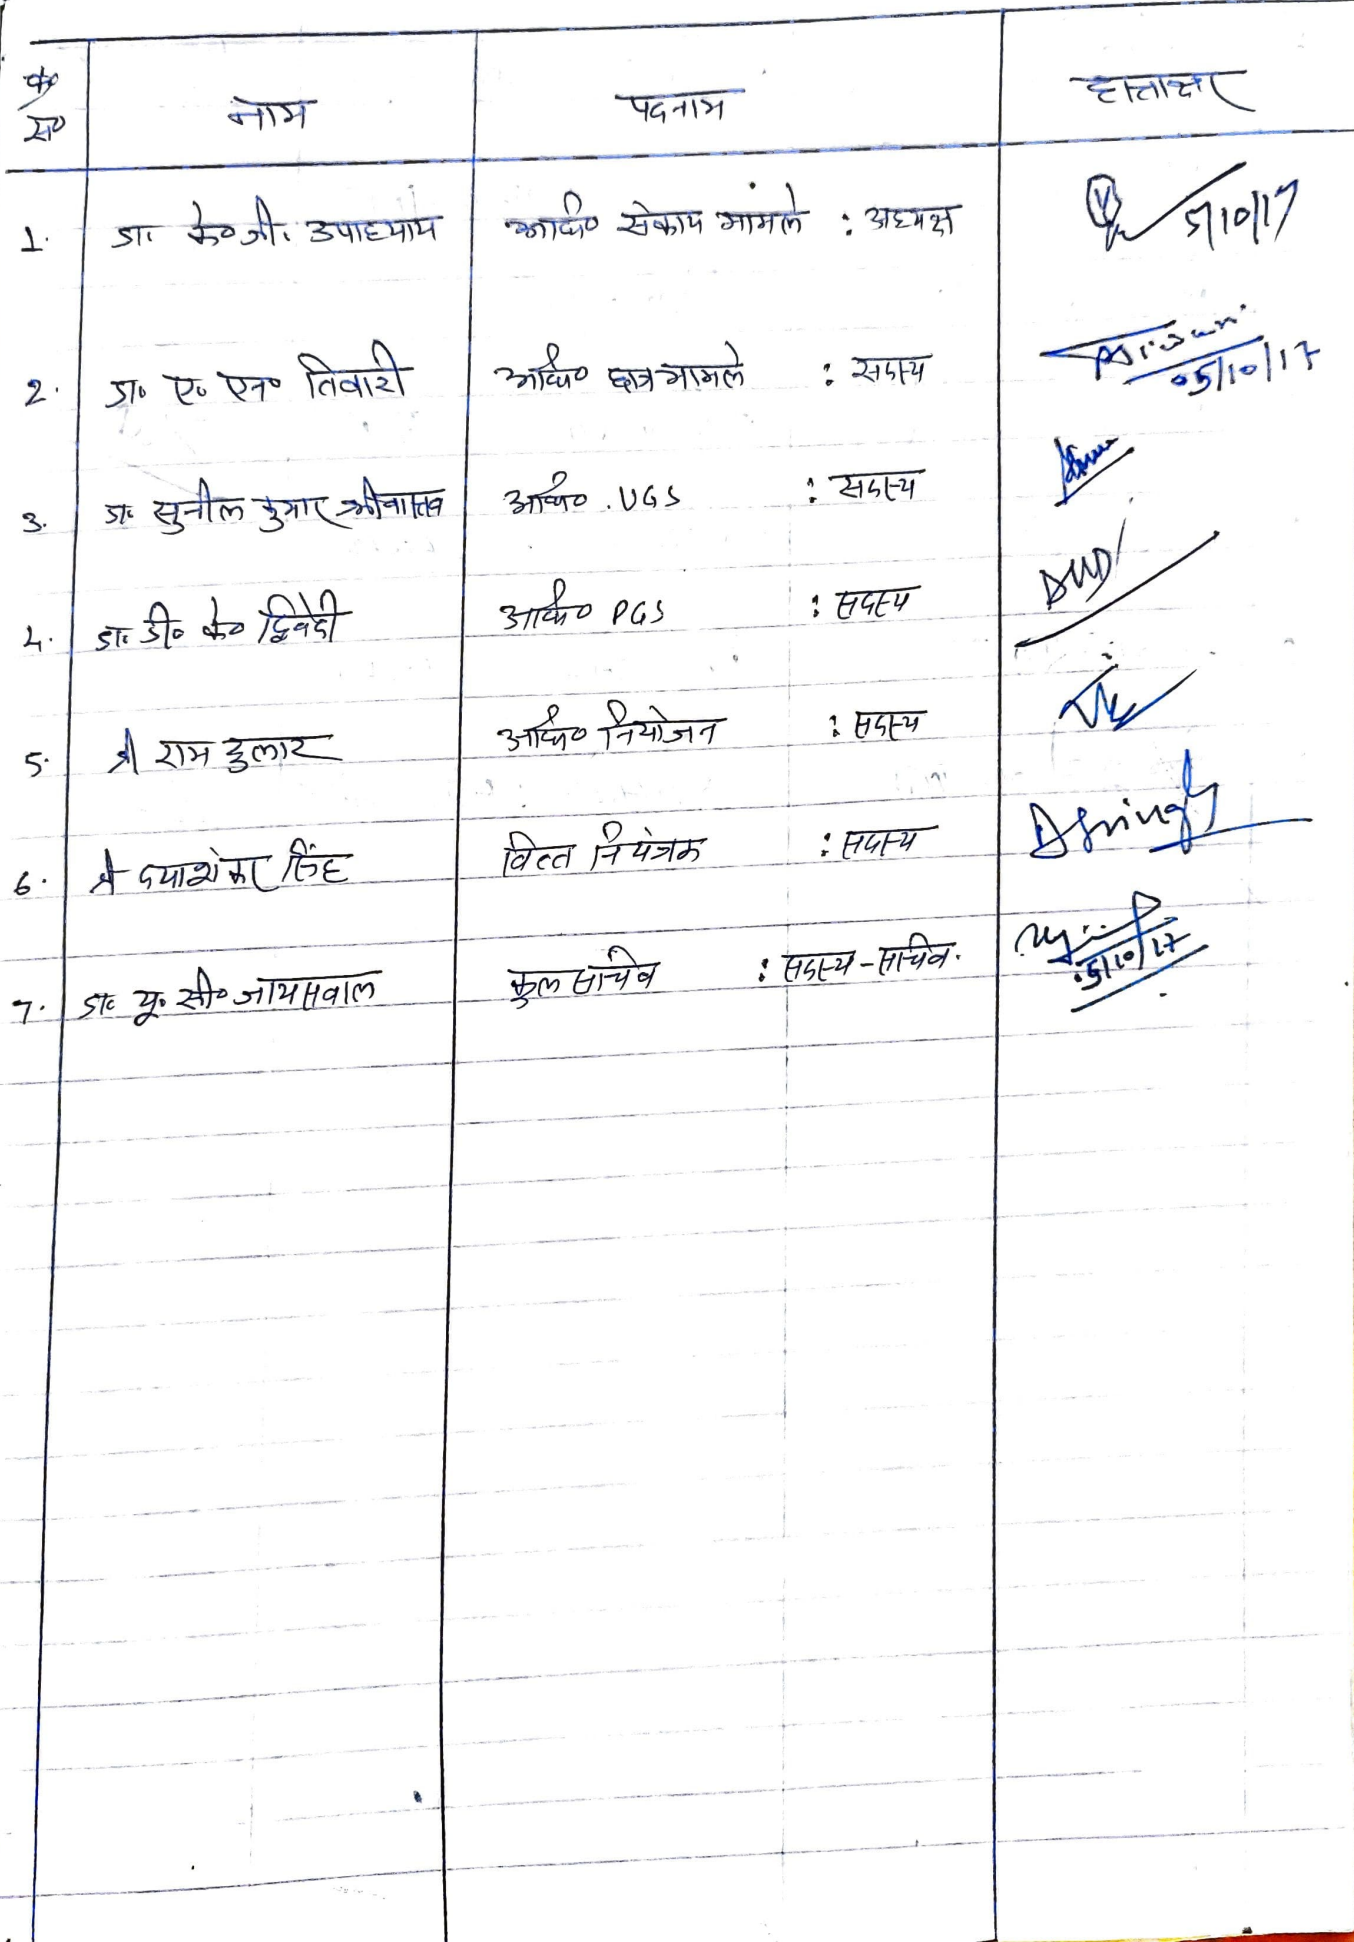 क्र०/सं० नाम पदनाम हस्ताक्षर
1. डा. के० जी. उपाध्याय अधि० संकाय मामले : अध्यक्ष 5/10/17
2. डा० ए० एन० तिवारी अधि० छात्र मामले : सदस्य 05/10/17
3. डा. सुनील कुमार श्रीवास्तव अधि० . UGS : सदस्य
4. डा. डी० के० द्विवेदी अधि० PGS : सदस्य
5. श्री राम दुलार अधि० नियोजन : सदस्य
6. श्री दयाशंकर सिंह वित्त नियंत्रक : सदस्य DSingh
7. डा. यू. सी० जायसवाल कुल सचिव : सदस्य-सचिव. 5/10/17